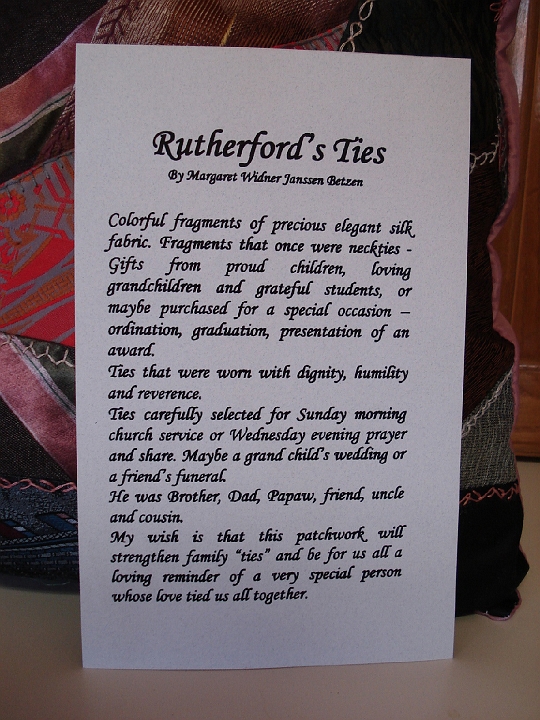 Rutherford's Ties
By Margaret Widner Janssen Betzen
Colorful fragments of precious elegant silk
fabric. Fragments that once were neckties -
Gifts from proud children, loving
grandchildren and grateful students, or
maybe purchased for a special occasion –
ordination, graduation, presentation of an
award.
Ties that were worn with dignity, humility
and reverence.
Ties carefully selected for Sunday morning
church service or Wednesday evening prayer
and share. Maybe a grand child's wedding or
a friend's funeral.
He was Brother, Dad, Papaw, friend, uncle
and cousin.
My wish is that this patchwork will
strengthen family "ties" and be for us all a
loving reminder of a very special person
whose love tied us all together.